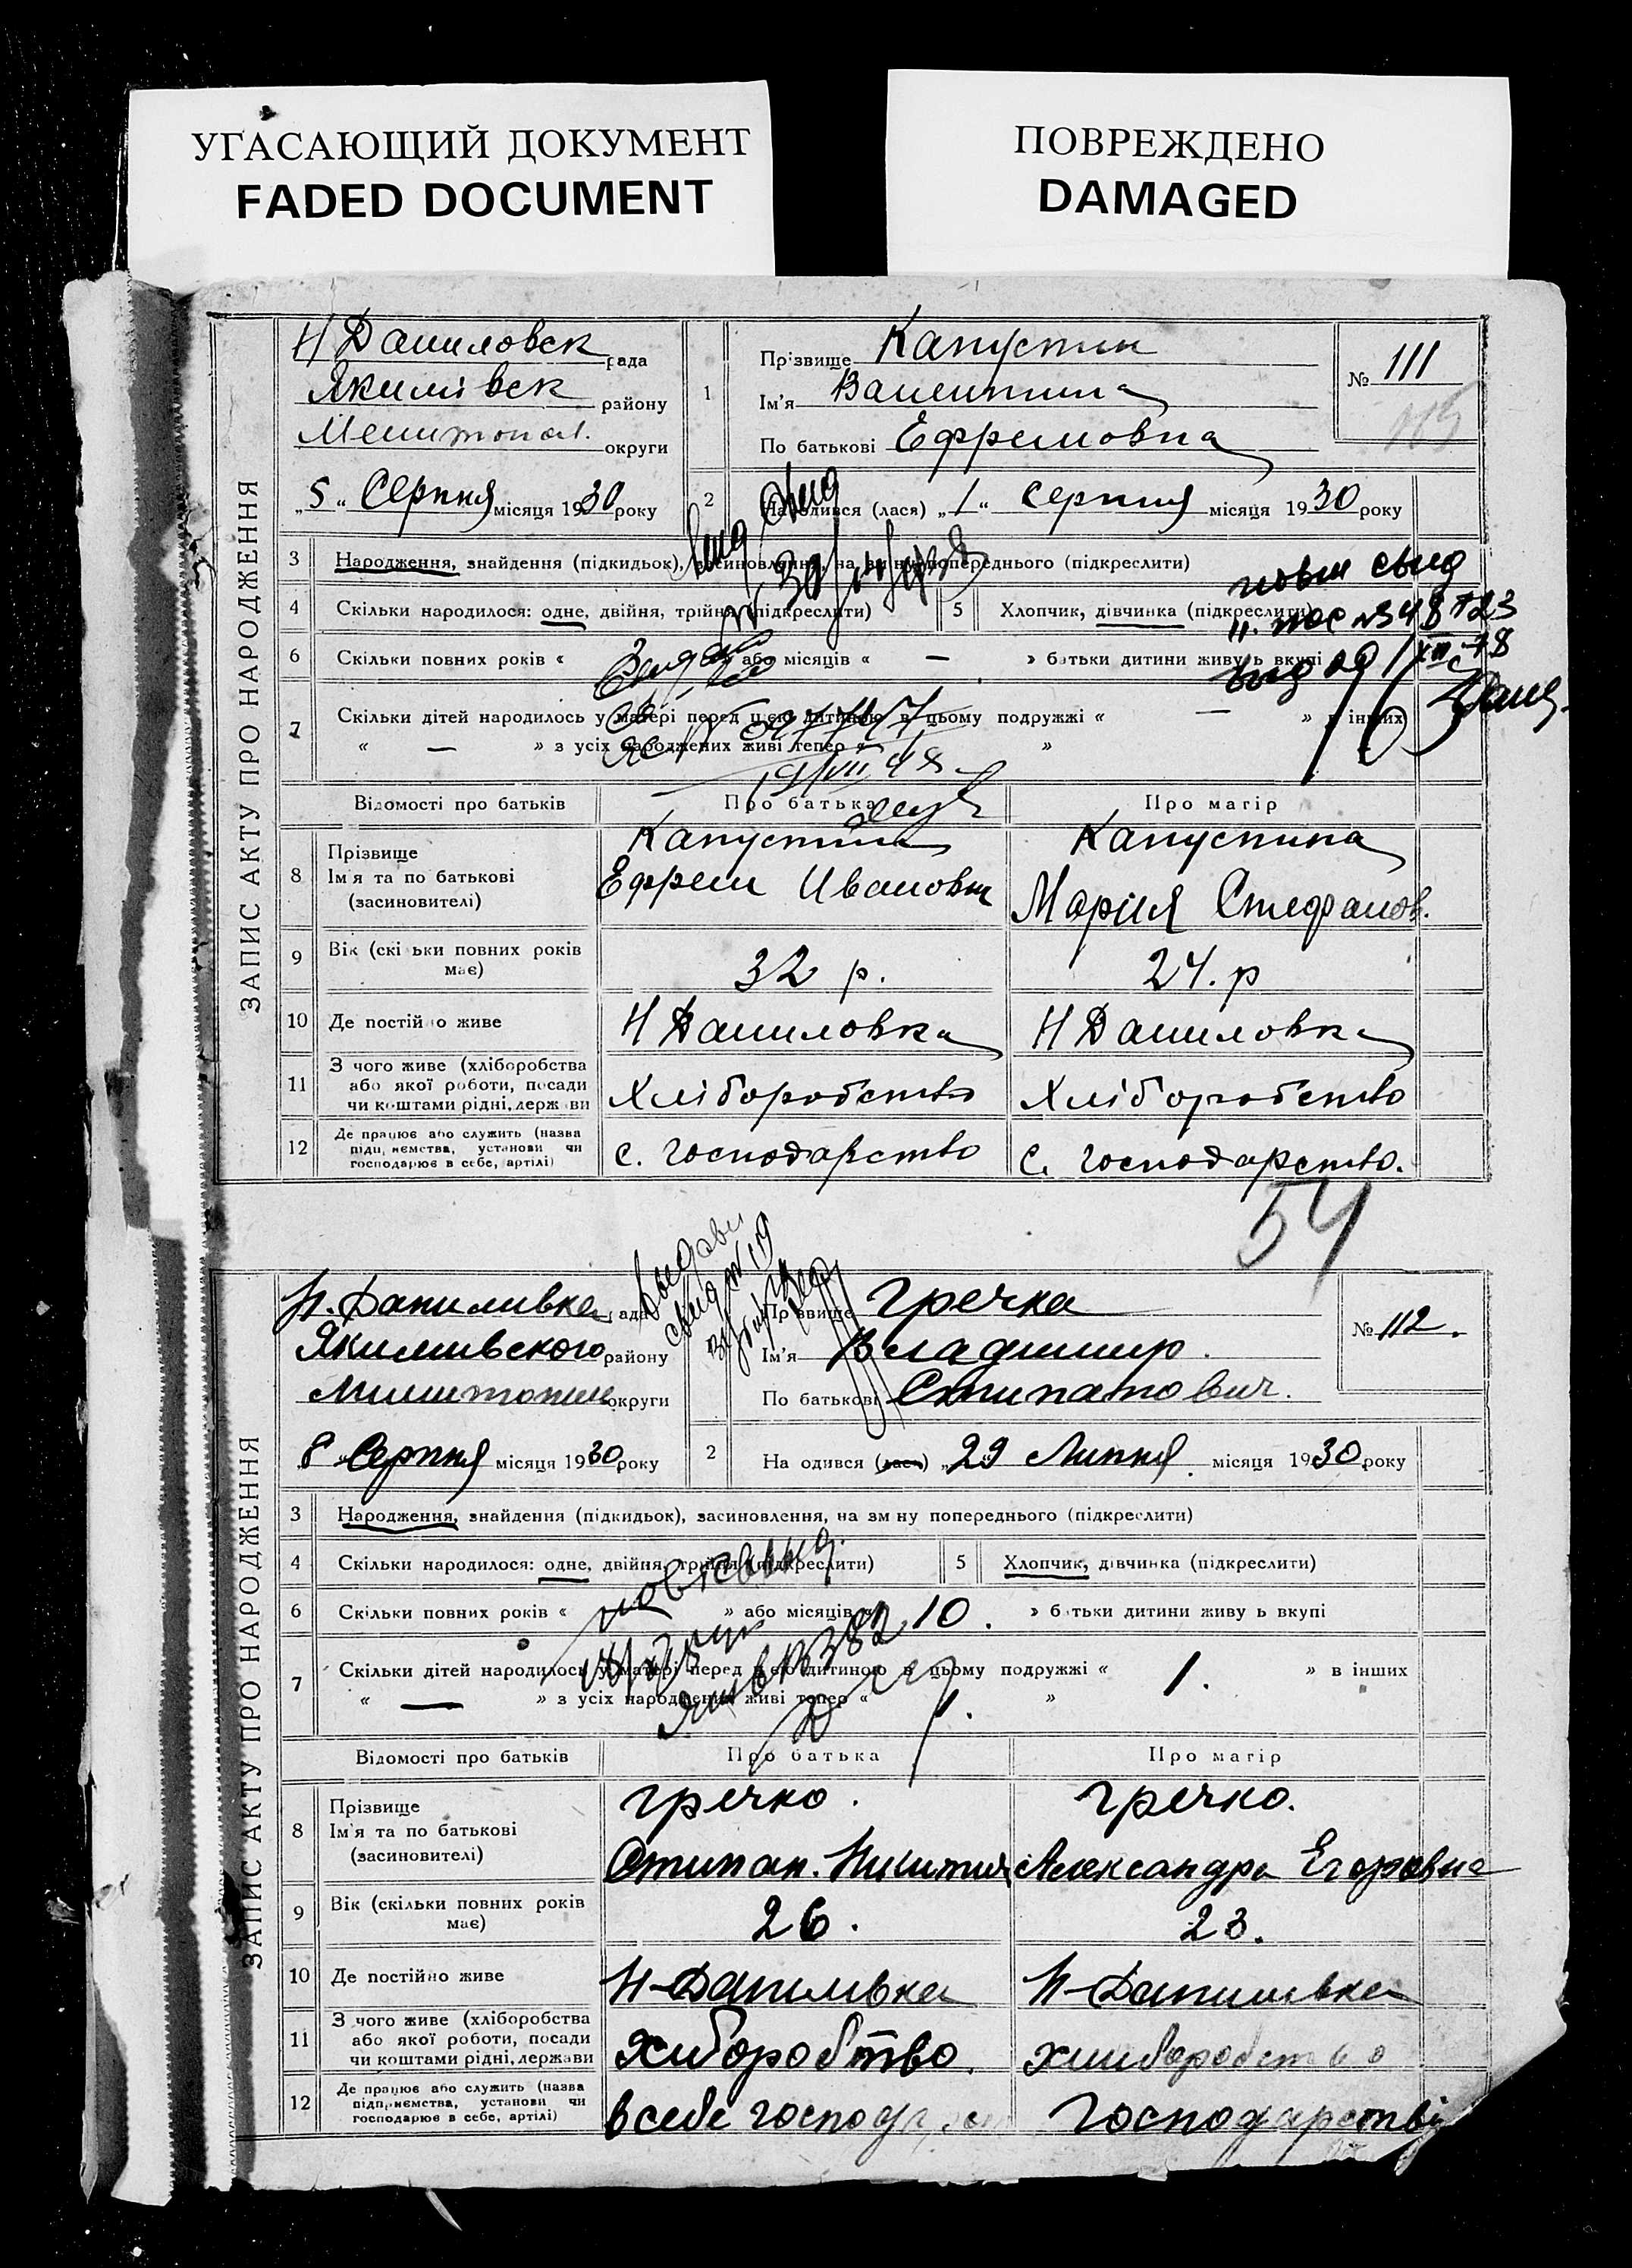 УГАСАЮЩИЙ ДОКУМЕНТ
FADED DOCUMENT
ПОВРЕЖДЕНО
DAMAGED
ЗАПИС АКТУ ПРО НАРОДЖЕННЯ
Н Даниловск рада
Якимівск району
Мелитопол. округи
„5“ Серпня місяця 1930 року
1
Прізвище Капустин
Ім'я Валентина
По батькові Ефремовна
№ 111
2 Народився (лася) „1“ серпня місяця 1930 року
3 Народження, знайдення (підкидьок), засиновлення, на зміну попереднього (підкреслити)
4 Скільки народилося: одне, двійня, трійня (підкреслити) 5 Хлопчик, дівчинка (підкреслити)
6 Скільки повних років « або місяців « — » батьки дитини живуть вкупі
7 Скільки дітей народилось у матері перед цією дитиною в цьому подружжі « — » в інших
« — » з усіх народжених живі тепер « »
повт свид
Відомості про батьків Про батька Про матір
8 Прізвище
Ім'я та по батькові
(засиновителі)
Капустин
Ефрем Иванович
Капустина
Мария Стефанов.
9 Вік (скільки повних років має) 32 р. 24. р
10 Де постійно живе Н Даниловка Н Даниловка
11 З чого живе (хліборобства
або якої роботи, посади
чи коштами рідні, держави
Хліборобство Хліборобство
12 Де працює або служить (назва
підприємства, установи чи
господарює в себе, артілі)
с. господарство с. господарство.
54
ЗАПИС АКТУ ПРО НАРОДЖЕННЯ
Н. Даниливка рада
Якимивського району
округи
8 Серпня місяця 1930 року
Прізвище Гречка
Ім'я Владимир.
По батькові Стипанович.
№ 112.
2 Народився (лася) „29 Липня місяця 1930 року
3 Народження, знайдення (підкидьок), засиновлення, на зміну попереднього (підкреслити)
4 Скільки народилося: одне, двійня, трійня (підкреслити) 5 Хлопчик, дівчинка (підкреслити)
6 Скільки повних років « » або місяців « 10. » батьки дитини живуть вкупі
7 Скільки дітей народилось у матері перед цією дитиною в цьому подружжі « 1. » в інших
« — » з усіх народжених живі тепер « 1. »
Відомості про батьків Про батька Про матір
8 Прізвище
Ім'я та по батькові
(засиновителі)
Гречко.
Стипан.
Гречко.
Александра Егоровна
9 Вік (скільки повних років має) 26. 23.
10 Де постійно живе Н-Данилівка Н-Данилівка
11 З чого живе (хліборобства
або якої роботи, посади
чи коштами рідні, держави
Хліборобтво. хлиборобство
12 Де працює або служить (назва
підприємства, установи чи
господарює в себе, артілі)
в себе господарст господарстві